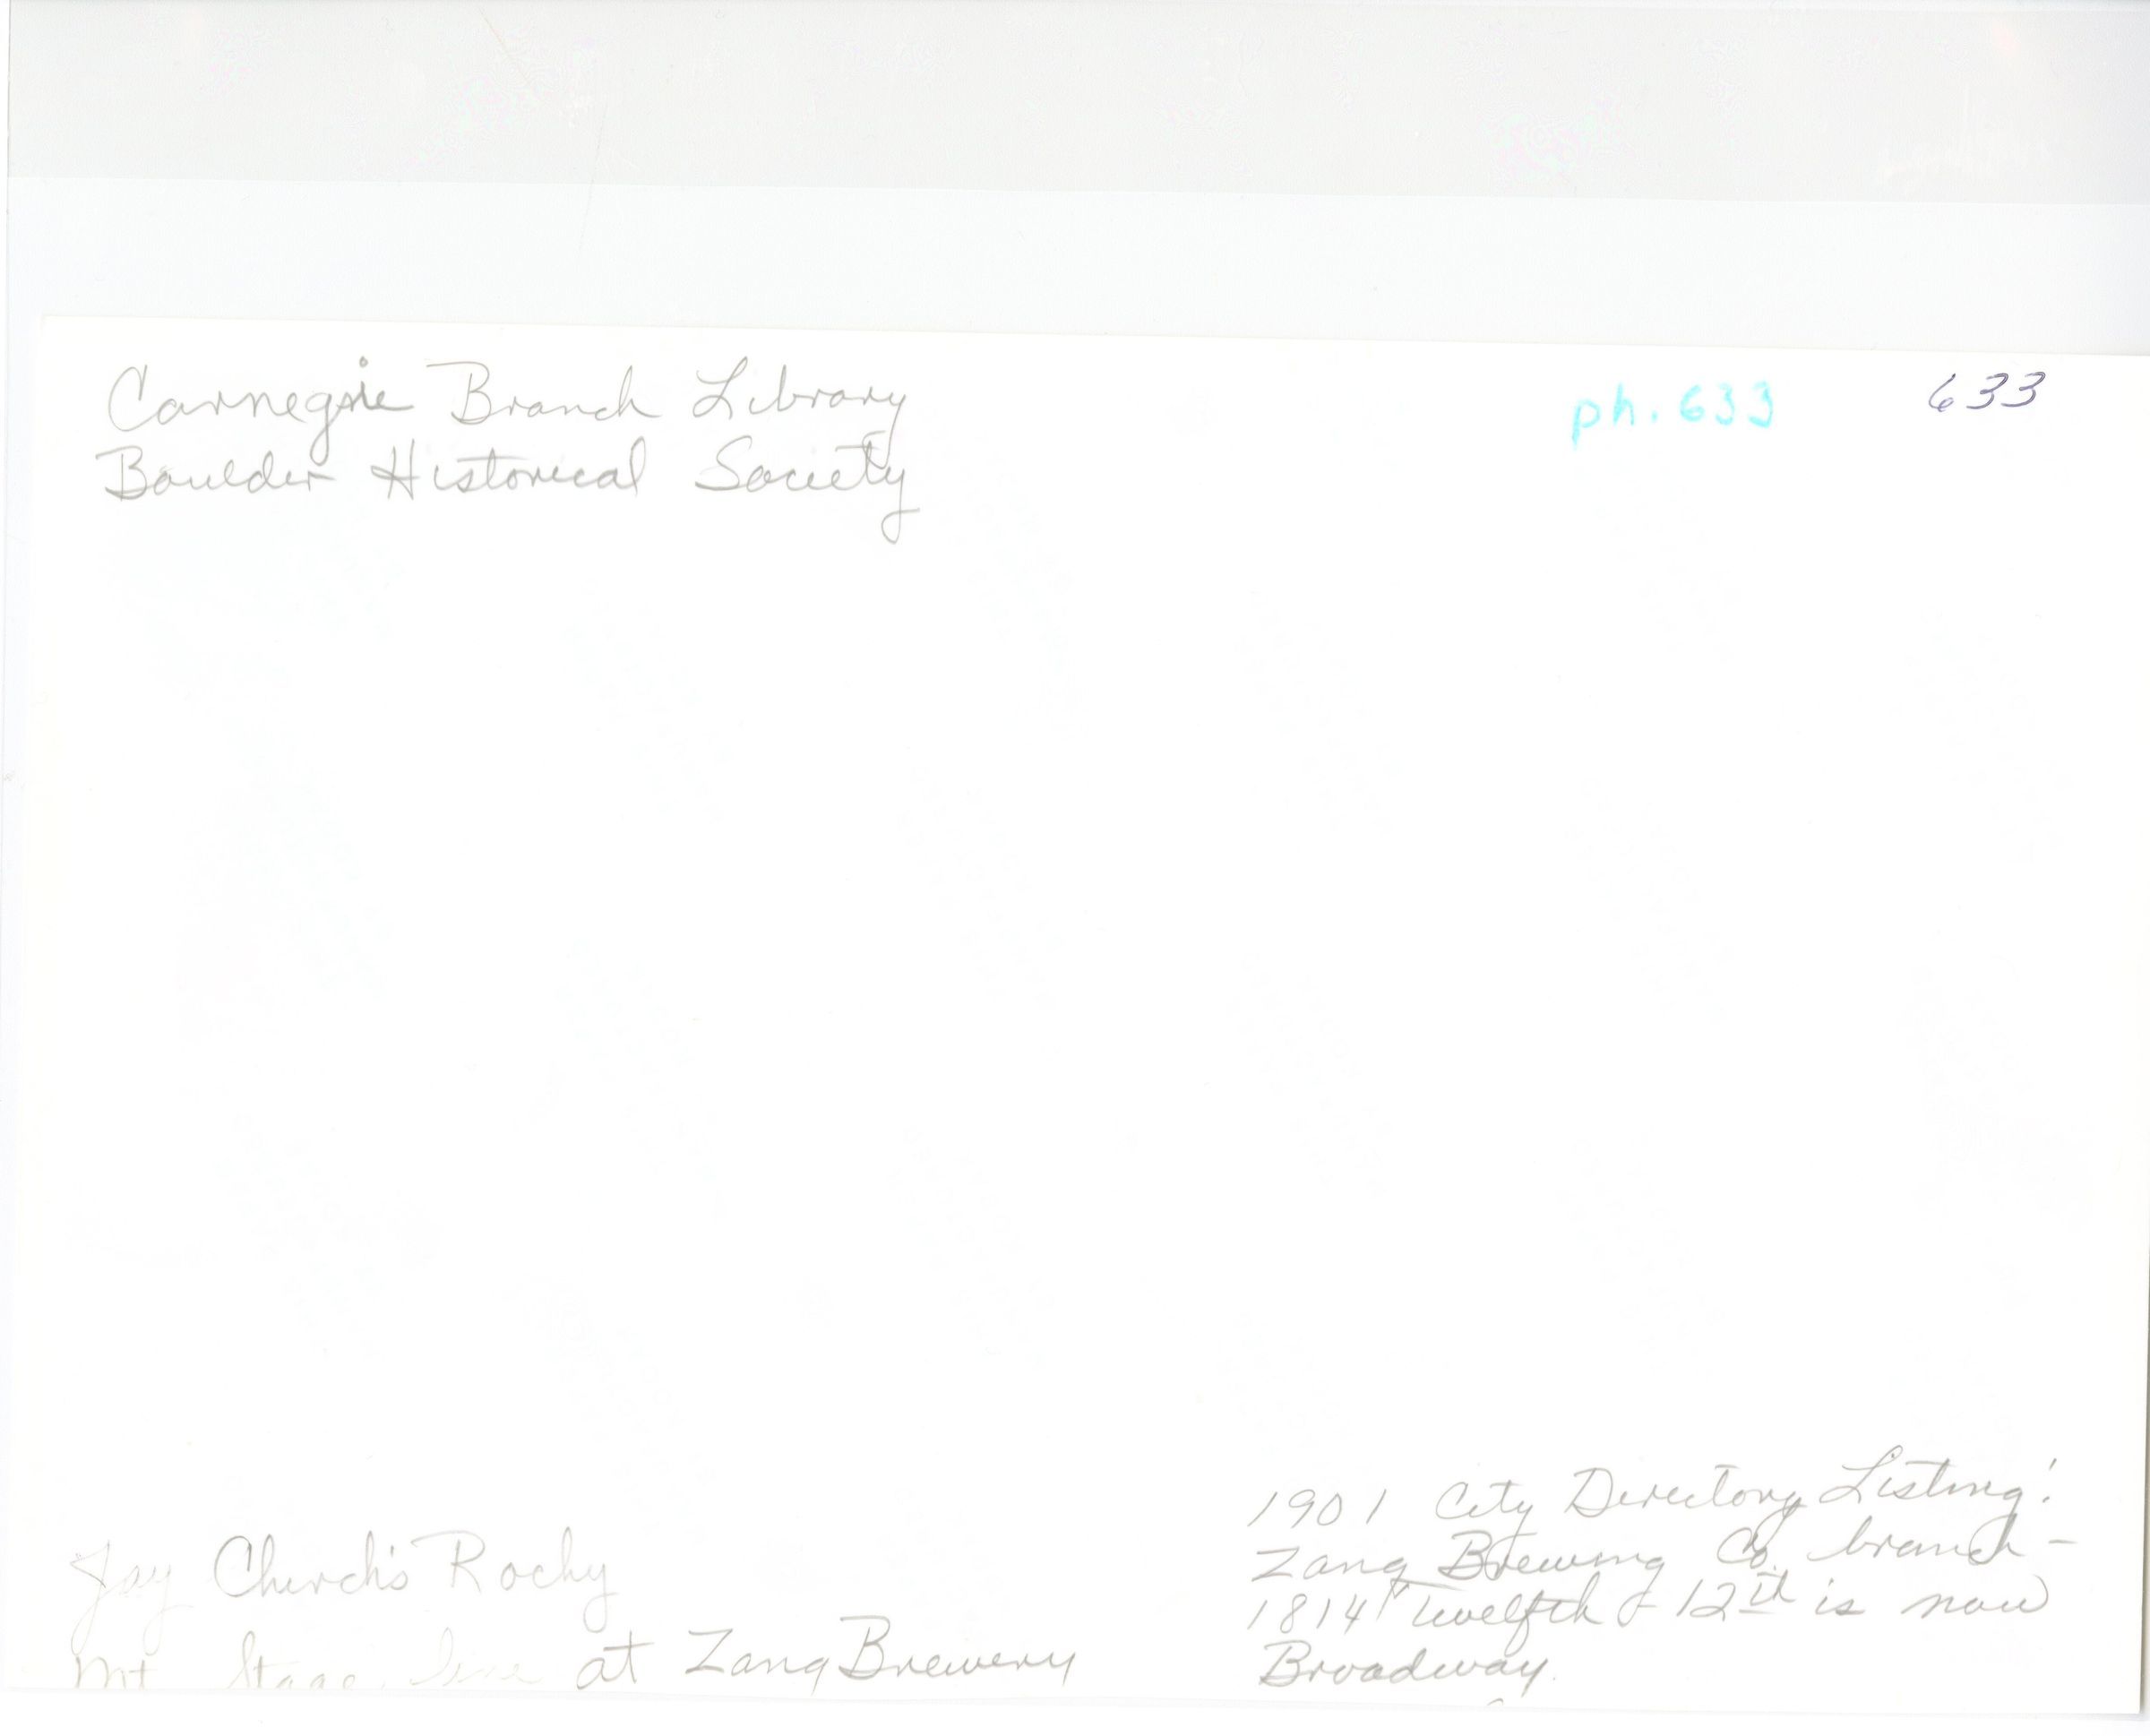 Carnegie Branch Library
Boulder Historical Society
ph. 633
633
Jay Church's Rocky
Mt Stage line at Zang Brewery
1901 City Directory Listing:
Zang Brewing Co. branch -
1814 Twelfth - 12th is now
Broadway.